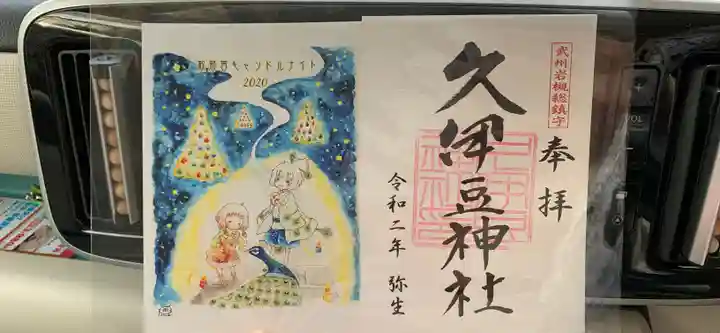 キャンドルナイト
2020
武州岩槻総鎮守
奉拝
久伊豆神社
令和二年 弥生